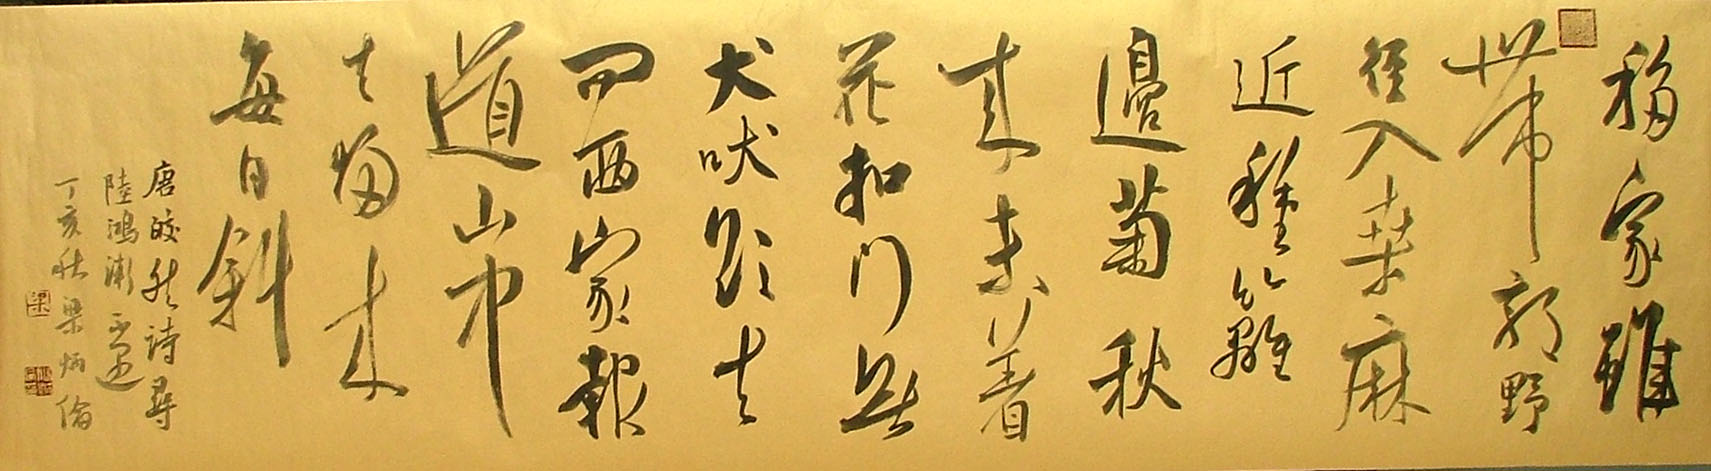 移家雖
帶郭野
徑入桑麻
近種籬
邊菊秋
來未着
花扣門無
犬吠欲去
問西家報
道山中
去歸來
每日斜
唐皎然詩尋
陸鴻漸不遇
丁亥秋梁炳倫
梁